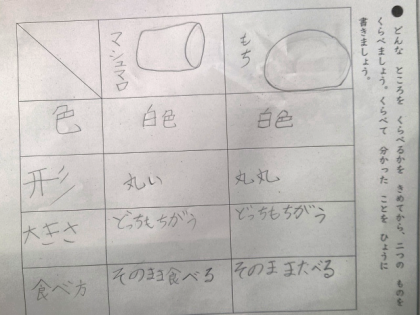 どんな ところを くらべるかを きめてから、二つの ものを
くらべましょう。くらべて 分かった ことを ひょうに
書きましょう。
マシュマロ
もち
色
白色
白色
形
丸い
丸丸
大きさ
どっちもちがう
どっちもちがう
食べ方
そのまま食べる
そのままたべる